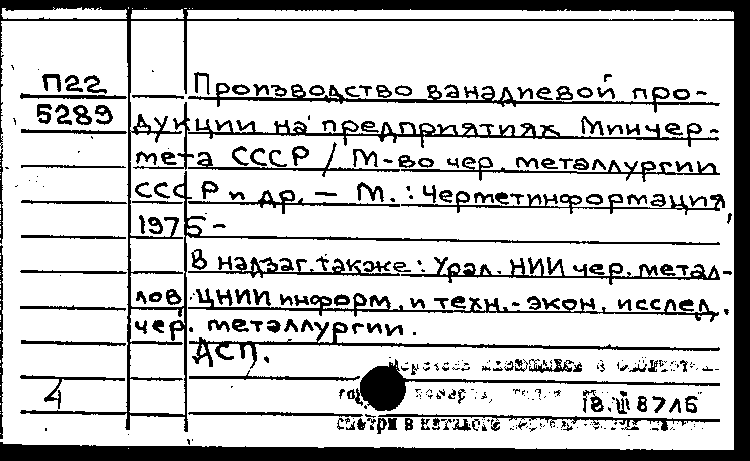 П22 Производство ванадиевой про-
5289 дукции на предприятиях Минчер-
мета СССР / М-во чер. металлургии
СССР и др. — М. : Черметинформация,
1975 -
В надзаг. также: Урал. НИИ чер. метал-
лов, ЦНИИ информ. и техн.-экон. исслед.
чер. металлургии.
ДСП.
4 18.VIII 87 ЛБ
смотри в каталоге